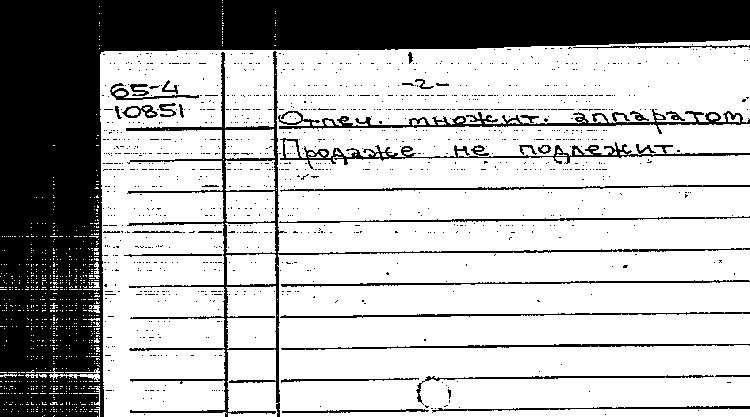 -2-
65-4
10851
Отпеч. множит. аппаратом.
Продаже не подлежит.